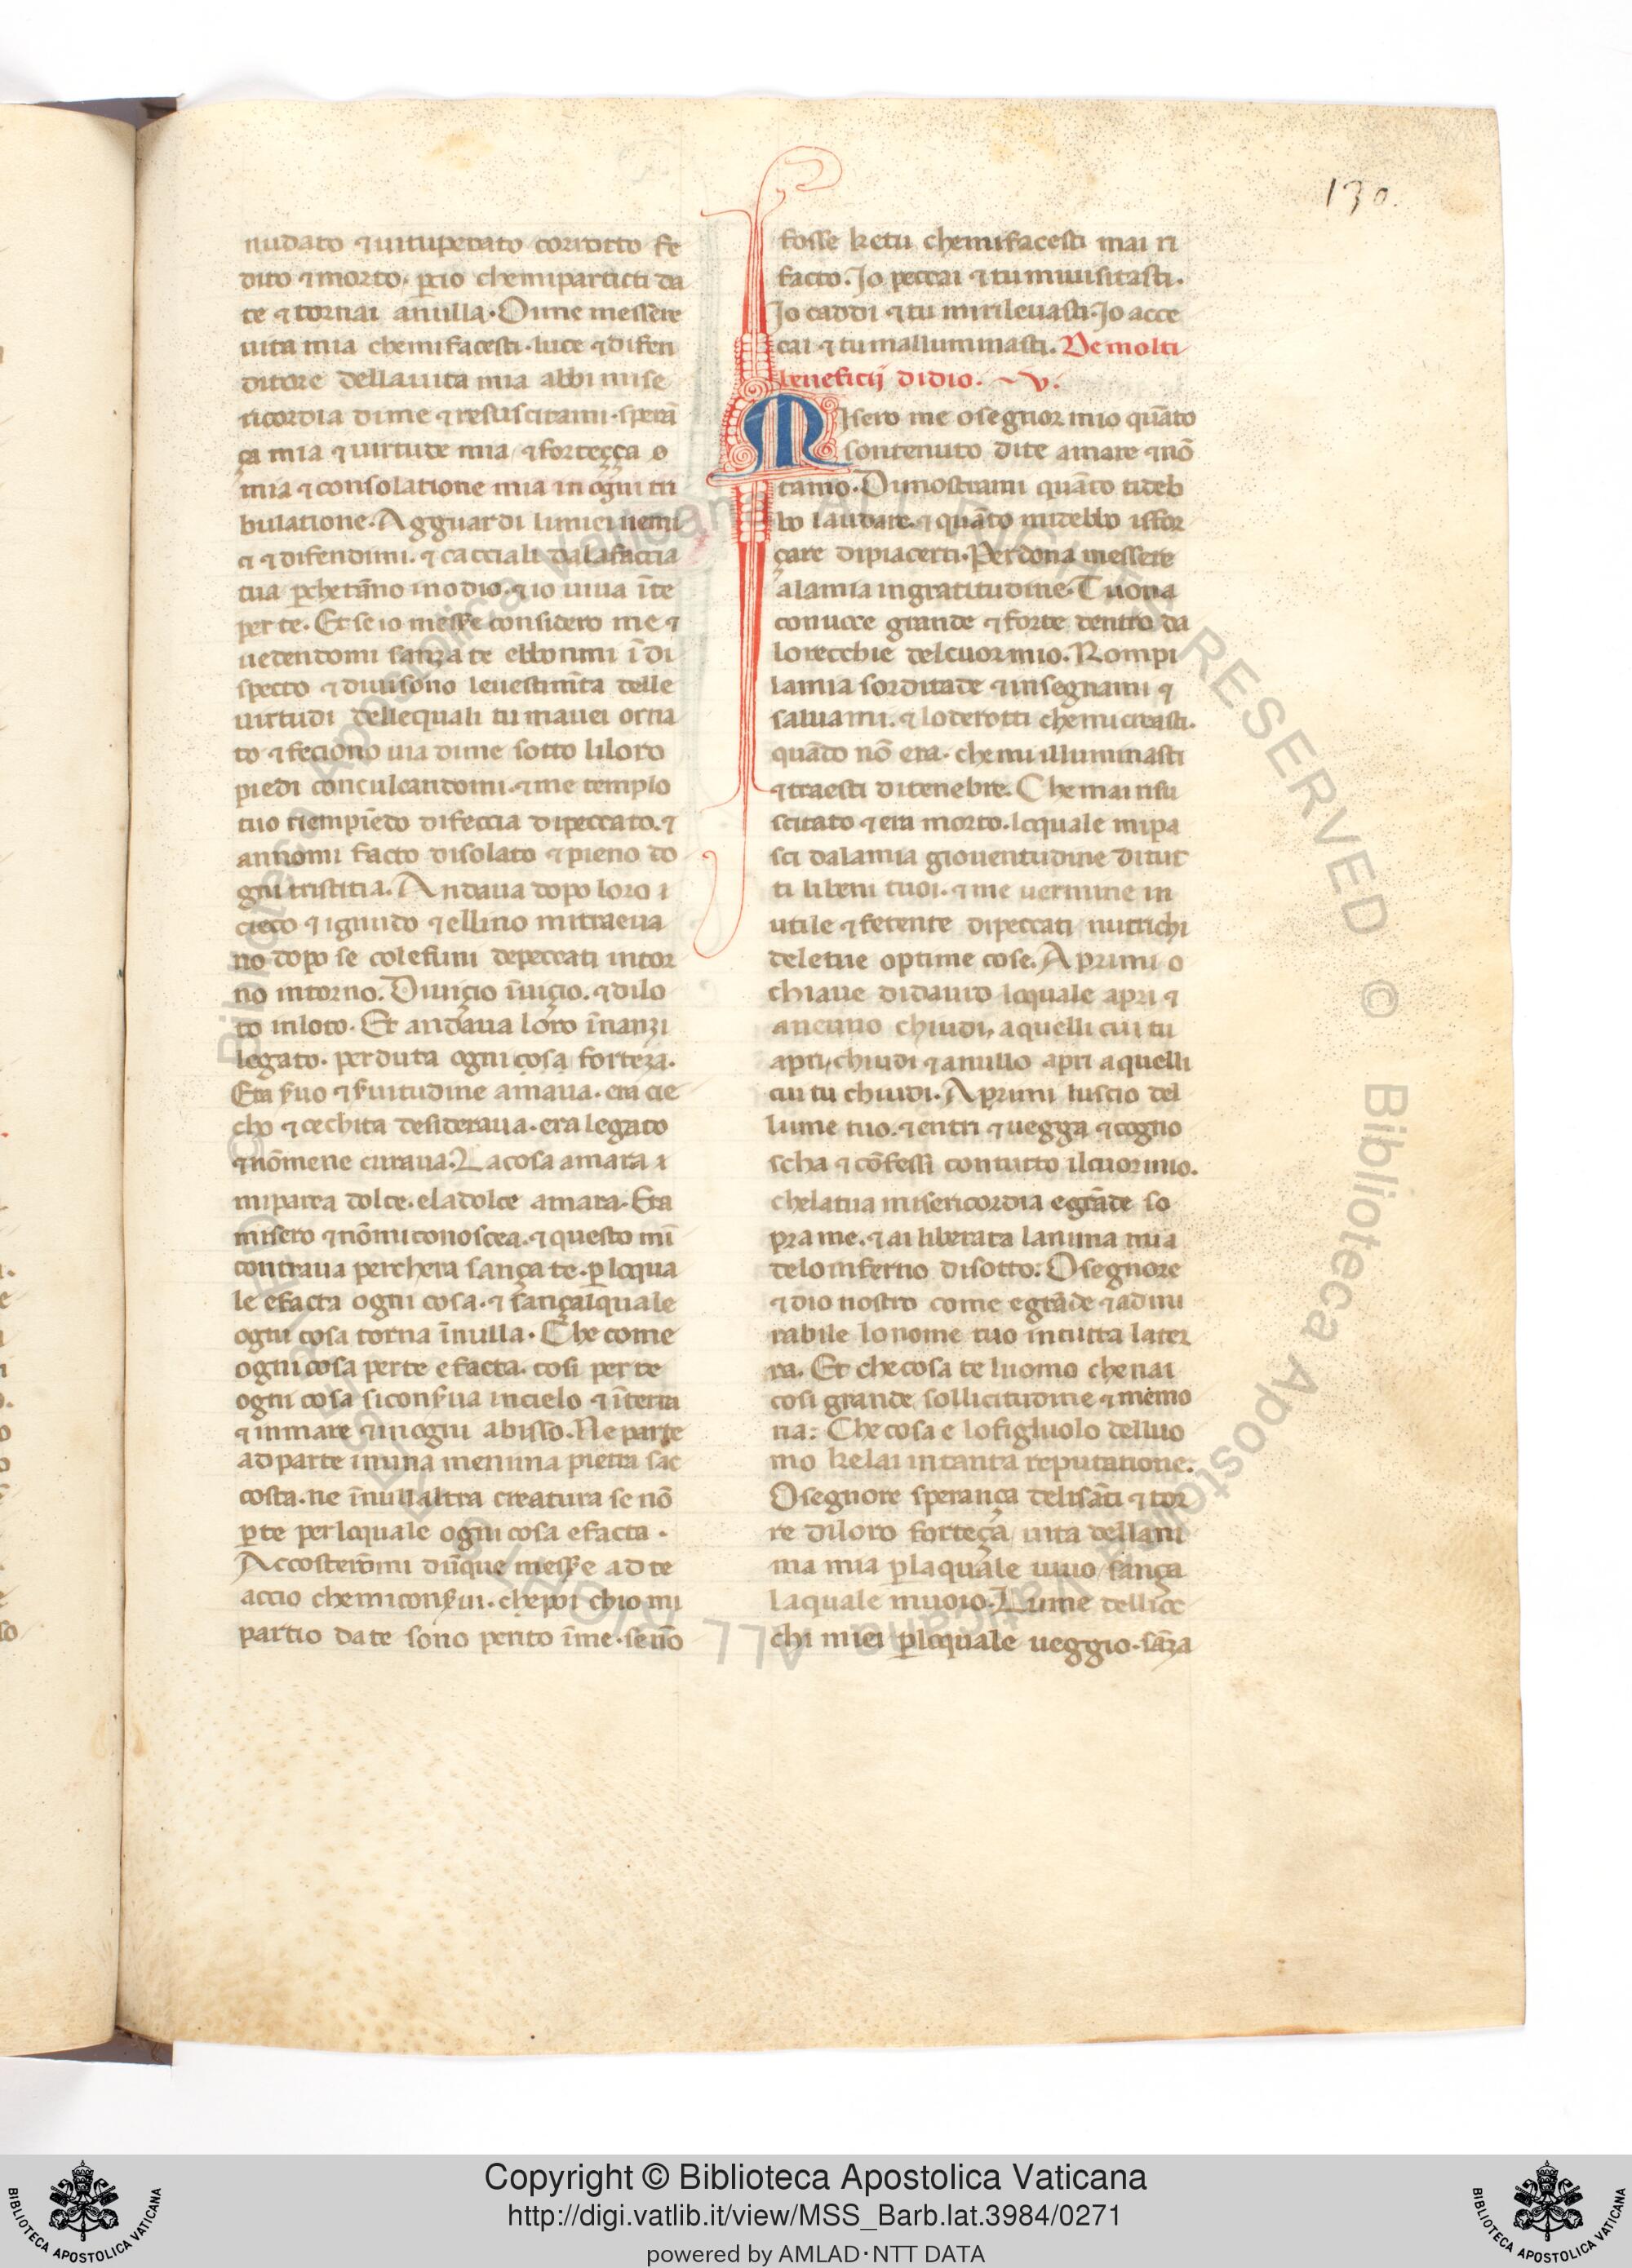 130.
nudato ⁊ uituperato corrotto fe
dito ⁊ morto. ꝑcio chemipartiti da
te ⁊ tornai anulla. Oime messere
uita mia chemifacesti. luce ⁊ difen
ditore dellauita mia abbi mise
ricordia dime ⁊ resuscitami. sperā
ça mia ⁊ uirtute mia ⁊ forteçça o
mia ⁊ consolatione mia in ogni tri
bulatione. Agguardi limiei nemi
ci ⁊ difendimi. ⁊ cacciali dalafaccia
tua ꝑchetāno inodio. ⁊ io uiua īte
per te. Et se io messe considero me ⁊
uedendomi sanza te ebbonmi ī di
specto ⁊ diuisono leuestimēta delle
uirtudi dellequali tu mauei orna
to ⁊ feciono uia dime sotto liloro
piedi conculcandomi. ⁊ me templo
tuo riempiēdo difeccia dipeccato. ⁊
annomi facto disolato ⁊ pieno do
gni tristitia. Andaua dopo loro i
cieco ⁊ ignudo ⁊ ellino mitraeua
no dopo se colefuni depeccati intor
no intorno. Dunçio īuiçio. ⁊ dilo
to inloto. Et andaua loro īnanzi
legato. perduta ogni cosa forteza.
Era ẜuo ⁊ ẜuitudine amaua. era cie
cho ⁊ cechita desideraua. era legato
⁊ nōmene curaua. La cosa amara i
miparea dolce. eladolce amara. Era
misero ⁊ nōmi conoscea. ⁊ questo mī
contraua perchera sança te. ꝑ loqua
le efacta ogni cosa. ⁊ sançalquale
ogni cosa torna īnulla. Che come
ogni cosa perte e facta. cosi per te
ogni cosa siconẜua incielo ⁊ īterra
⁊ inmare ⁊ inogni abisso. Ne parte
ad parte inuna menima pietra sac
costa. ne īnullaltra creatura se nō
ꝑte perloquale ogni cosa efacta.
Accosterōmi dūque messe ad te
accio chemiconẜui. chepoi chio mi
partio date sono perito īme. senō
fosse ketu chemifacesti mai ri
facto. Io peccai ⁊ tu miuisitasti.
Io caddi ⁊ tu mirileuasti. Io acce
cai ⁊ tu malluminasti. De molti
beneficij didio. v.
Misero me o segnor mio quāto
sontenuto dite amare ⁊ nō
tamo. Dimostrami quāto tideb
bo laudare. ⁊ quāto mi debbo isfor
çare dipiacerti. Perdona messere
alamia ingratitudine. Tuona
conuoce grande ⁊ forte dentro da
lorecchie delcuor mio. Rompi
lamia sorditade ⁊ insegnami ⁊
saluami. ⁊ loderotti chemi creasti.
quādo nō era. che mi illuminasti
⁊ traesti ditenebre. Che mai risu
scitato ⁊ era morto. loquale mipa
sci dalamia giouentudine di tut
ti libeni tuoi. ⁊ me uermine in
utile ⁊ fetente dipeccati nutrichi
deletue optime cose. Aprimi o
chiaue didauid loquale apri ⁊
aneuno chiudi, aquelli cui tu
apri, chiudi ⁊ anullo apri aquelli
cui tu chiudi. Aprimi luscio del
lume tuo. ⁊ entri ⁊ uegga ⁊ cogno
scha ⁊ cōfessi contutto ilcuormio.
chelatua misericordia egrāde so
pra me. ⁊ ai liberata lanima mia
delo inferno disotto. O segnore
⁊ dio nostro come egrāde ⁊ admi
rabile lonome tuo intutta later
ra. Et checosa te luomo chenai
cosi grande sollicitudine ⁊ memo
ria: Che cosa e lofigluolo delluo
mo kelai intanta reputatione:
O segnore sperança delisāti ⁊ tor
re diloro forteça, uita dellani
ma mia ꝑ laquale uiuo sança
laquale muoio. Lume delliec
chi miei ꝑ loquale ueggio. sāza
Copyright © Biblioteca Apostolica Vaticana
http://digi.vatlib.it/view/MSS_Barb.lat.3984/0271
powered by AMLAD·NTT DATA
BIBLIOTECA APOSTOLICA VATICANA
BIBLIOTECA APOSTOLICA VATICANA